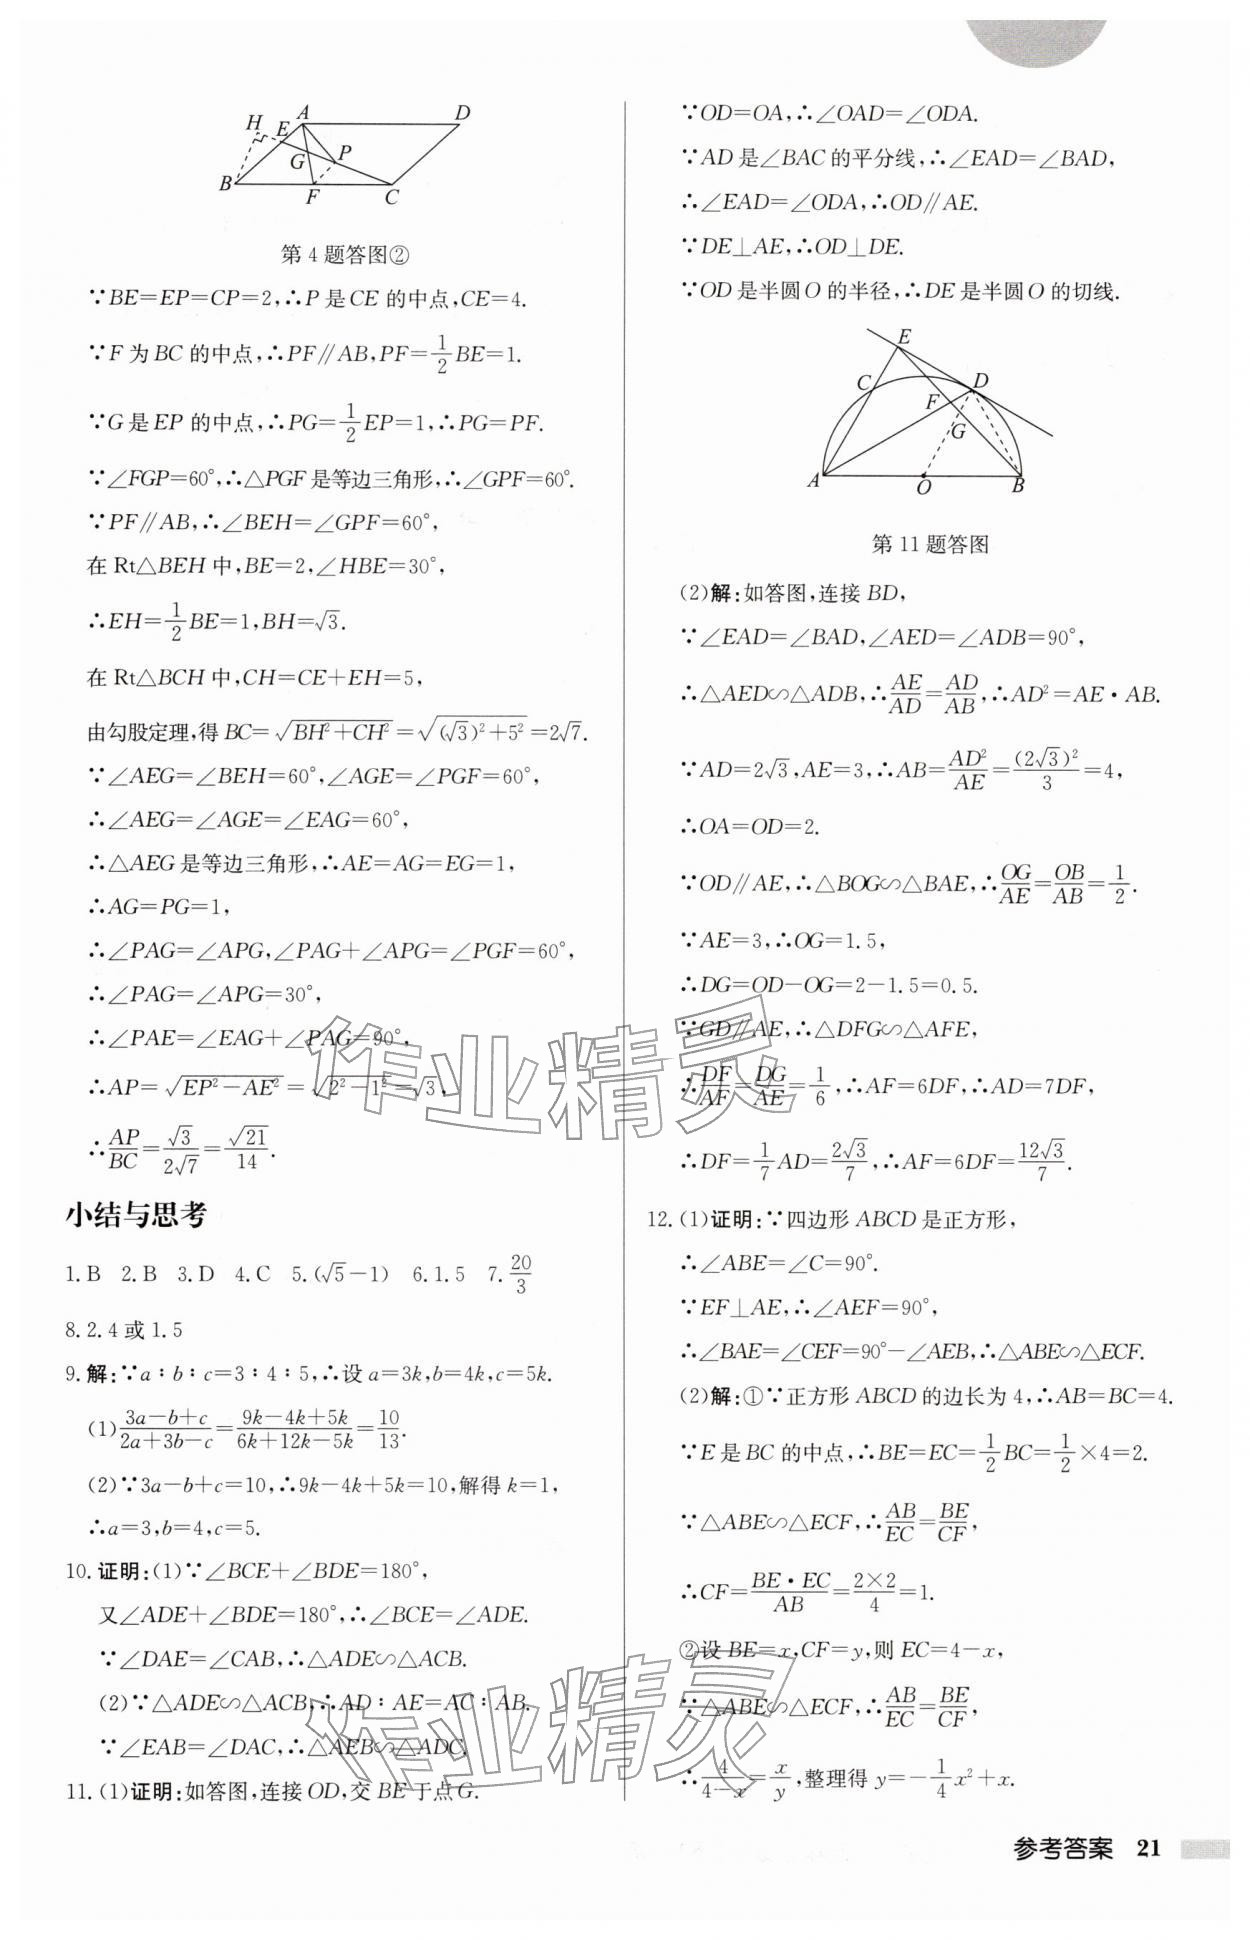 A
D
H
E
G
P
B
F
C
第4题答图②
∵BE=EP=CP=2,∴P是CE的中点,CE=4.
∵F为BC的中点,∴PF∥AB,PF=1/2BE=1.
∵G是EP的中点,∴PG=1/2EP=1,∴PG=PF.
∵∠FGP=60°,∴△PGF是等边三角形,∴∠GPF=60°.
∵PF∥AB,∴∠BEH=∠GPF=60°,
在Rt△BEH中,BE=2,∠HBE=30°,
∴EH=1/2BE=1,BH=√3.
在Rt△BCH中,CH=CE+EH=5,
由勾股定理,得BC=√(BH²+CH²)=√((√3)²+5²)=2√7.
∵∠AEG=∠BEH=60°,∠AGE=∠PGF=60°,
∴∠AEG=∠AGE=∠EAG=60°,
∴△AEG是等边三角形,∴AE=AG=EG=1,
∴AG=PG=1,
∴∠PAG=∠APG,∠PAG+∠APG=∠PGF=60°,
∴∠PAG=∠APG=30°,
∴∠PAE=∠EAG+∠PAG=90°,
∴AP=√(EP²-AE²)=√(2²-1²)=√3,
∴AP/BC=√3/(2√7)=√21/14.
小结与思考
1.B 2.B 3.D 4.C 5.(√5-1) 6.1.5 7.20/3
8.2.4或1.5
9.解:∵a∶b∶c=3∶4∶5,∴设a=3k,b=4k,c=5k.
(1)(3a-b+c)/(2a+3b-c)=(9k-4k+5k)/(6k+12k-5k)=10/13.
(2)∵3a-b+c=10,∴9k-4k+5k=10,解得k=1,
∴a=3,b=4,c=5.
10.证明:(1)∵∠BCE+∠BDE=180°,
又∠ADE+∠BDE=180°,∴∠BCE=∠ADE.
∵∠DAE=∠CAB,∴△ADE∽△ACB.
(2)∵△ADE∽△ACB,∴AD∶AE=AC∶AB.
∵∠EAB=∠DAC,∴△AEB∽△ADC.
11.(1)证明:如答图,连接OD,交BE于点G.
∵OD=OA,∴∠OAD=∠ODA.
∵AD是∠BAC的平分线,∴∠EAD=∠BAD,
∴∠EAD=∠ODA,∴OD∥AE.
∵DE⊥AE,∴OD⊥DE.
∵OD是半圆O的半径,∴DE是半圆O的切线.
E
C
D
F
G
A
O
B
第11题答图
(2)解:如答图,连接BD,
∵∠EAD=∠BAD,∠AED=∠ADB=90°,
∴△AED∽△ADB,∴AE/AD=AD/AB,∴AD²=AE·AB.
∵AD=2√3,AE=3,∴AB=AD²/AE=(2√3)²/3=4,
∴OA=OD=2.
∵OD∥AE,∴△BOG∽△BAE,∴OG/AE=OB/AB=1/2.
∵AE=3,∴OG=1.5,
∴DG=OD-OG=2-1.5=0.5.
∵GD∥AE,∴△DFG∽△AFE,
∴DF/AF=DG/AE=1/6,∴AF=6DF,∴AD=7DF,
∴DF=1/7AD=2√3/7,∴AF=6DF=12√3/7.
12.(1)证明:∵四边形ABCD是正方形,
∴∠ABE=∠C=90°.
∵EF⊥AE,∴∠AEF=90°,
∴∠BAE=∠CEF=90°-∠AEB,∴△ABE∽△ECF.
(2)解:①∵正方形ABCD的边长为4,∴AB=BC=4.
∵E是BC的中点,∴BE=EC=1/2BC=1/2×4=2.
∵△ABE∽△ECF,∴AB/EC=BE/CF,
∴CF=BE·EC/AB=2×2/4=1.
②设BE=x,CF=y,则EC=4-x,
∵△ABE∽△ECF,∴AB/EC=BE/CF,
∴4/(4-x)=x/y,整理得y=-1/4x²+x.
作业精灵
作业精灵
参考答案 21